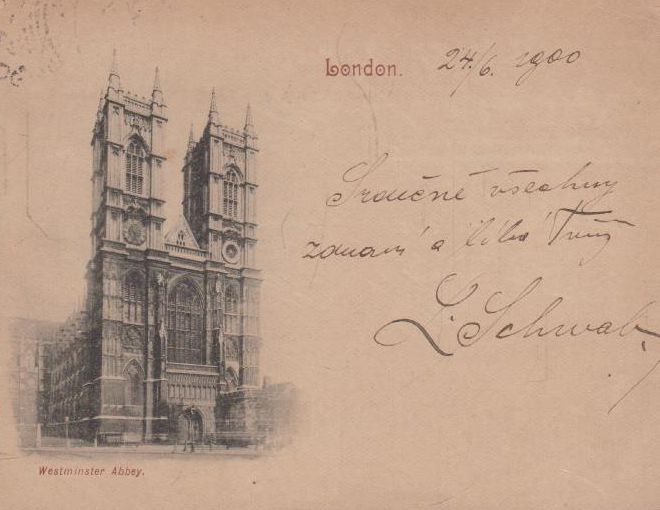 London.
24./6. 1900
Srdečné všechny
zdraví a líbá Tvůj
L. Schwab.
Westminster Abbey.